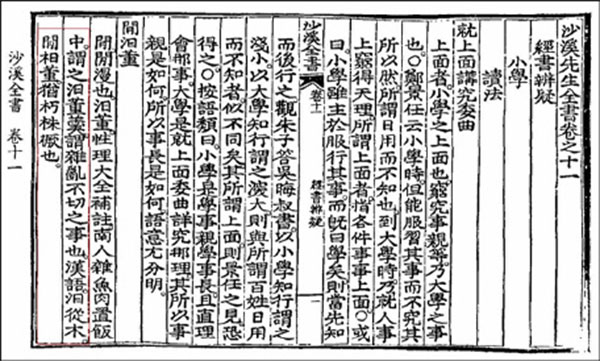 沙溪先生全書卷之十一
經書辨疑
小學
讀法
就上面講究委曲
上面者。小學之上面也。窮究事親等。乃大學之事
也。○鄭景任云。小學時。但能服習其事而不究其
所以然。所謂日用而不知也。到大學時。乃就人事
上窮得天理。所謂上面者。指各件事事上面。○或
曰。小學雖主於服行其事。而旣曰學矣。則當先知
沙溪全書 卷十一 經書辨疑 一
而後行之。觀朱子答吳晦叔書。以小學知行謂之
淺小。以大學知行謂之深大。則與所謂百姓日用
而不知者。似不同矣。其所謂上面。則景任之見恐
得之。○按語類曰。小學是學事親學事長。且直理
會那事。大學是就上面委曲詳究那理。其所以事
親是如何。所以事長是如何。語意尤分明。
閒汩董
閒。閒漫也。汩董。性理大全補註。南人雜魚肉置飯
中。謂之汩董羹。謂雜亂不切之事也。漢語。汩從木
閒相董。猶朽株橛也。
沙溪全書 卷十一